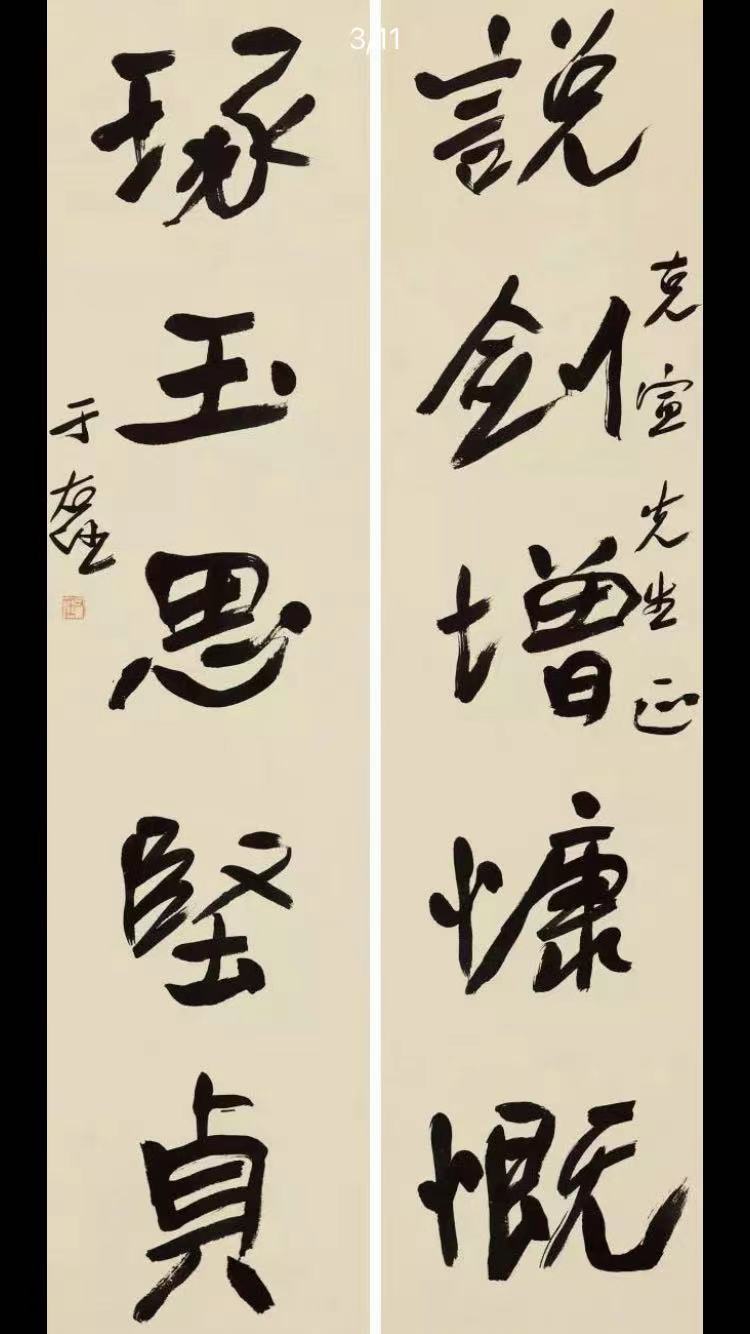 3/11
說劍增慷慨
克宣先生正
琢玉思堅貞
于右任